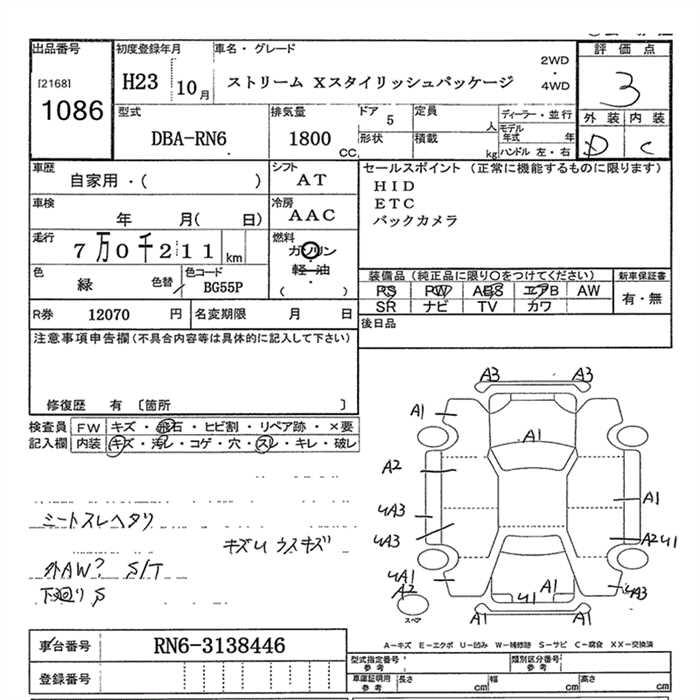 出品番号 初度登録年月 車名・グレード 評価点
[2168] 1086
H23 10月 ストリーム Xスタイリッシュパッケージ 2WD・4WD
3
外装 内装
D C
型式 排気量 ドア 定員 ディーラー・並行
DBA-RN6 1800 CC 5 人
モデル年式 年
形状 積載 kg ハンドル 左・右
車歴 シフト セールスポイント (正常に機能するものに限ります)
自家用・( ) AT
HID
ETC
バックカメラ
車検 冷房
年 月( 日) AAC
走行 燃料
7万0千211 km ガソリン・軽油・( )
色 色替 色コード
緑 BG55P
装備品(純正品に限り○をつけてください) 新車保証書
PS PW ABS エアB AW 有・無
SR ナビ TV カワ
R券 12070 円 名変期限 月 日
後日品
注意事項申告欄(不具合内容等は具体的に記入して下さい)
修復歴 有 〔箇所 〕
検査員 FW キズ・飛石・ヒビ割・リペア跡・×要
記入欄 内装 キズ・汚レ・コゲ・穴・スレ・キレ・破レ
シートスレヘタリ
キズU ウスキズ
外AW? S/T
下廻りS
A3 A3
A1 A1
A2
4A3 A1
4A3 A2 41
4A1 A1 4A3
A2 41
スペア
A3 A3
車台番号 RN6-3138446
A-キズ E-エクボ U-凹み W-補修跡 S-サビ C-腐食 XX-交換済
登録番号
型式指定番号 参考 類別区分番号 参考
車庫証明用 参考 長さ cm 幅 cm 高さ cm